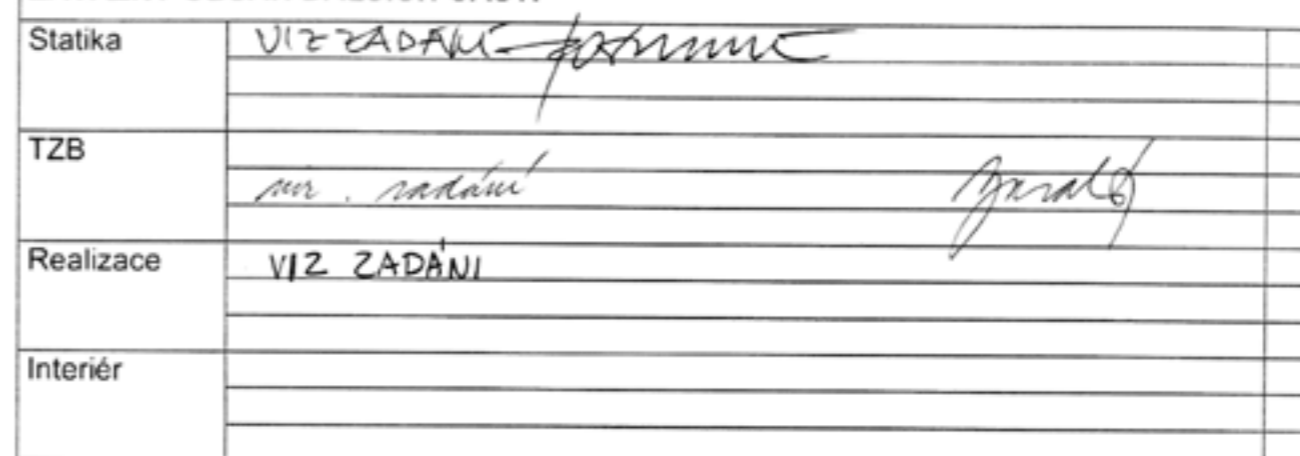 Statika VIZ ZADÁNÍ
TZB
viz. zadání
Realizace VIZ ZADÁNI
Interiér